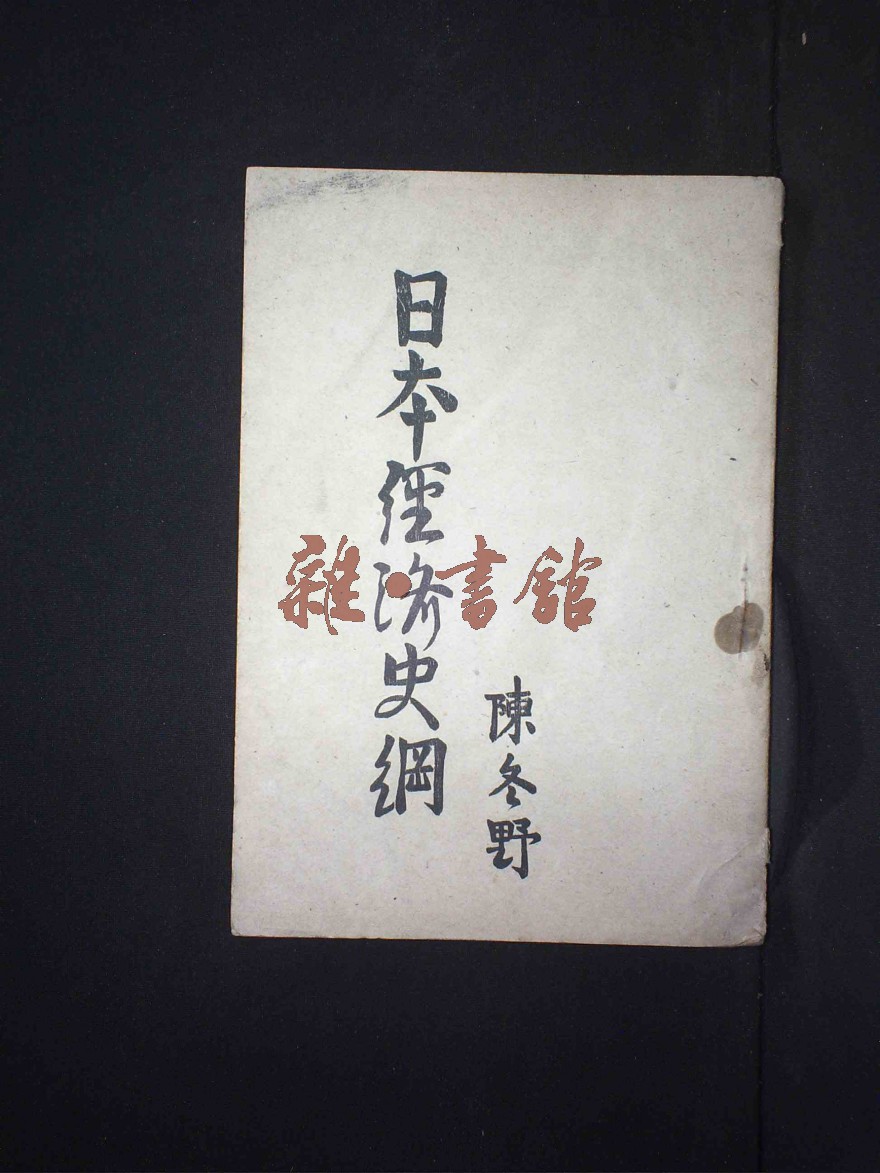 日本經濟史綱
陳冬野
雜·書館